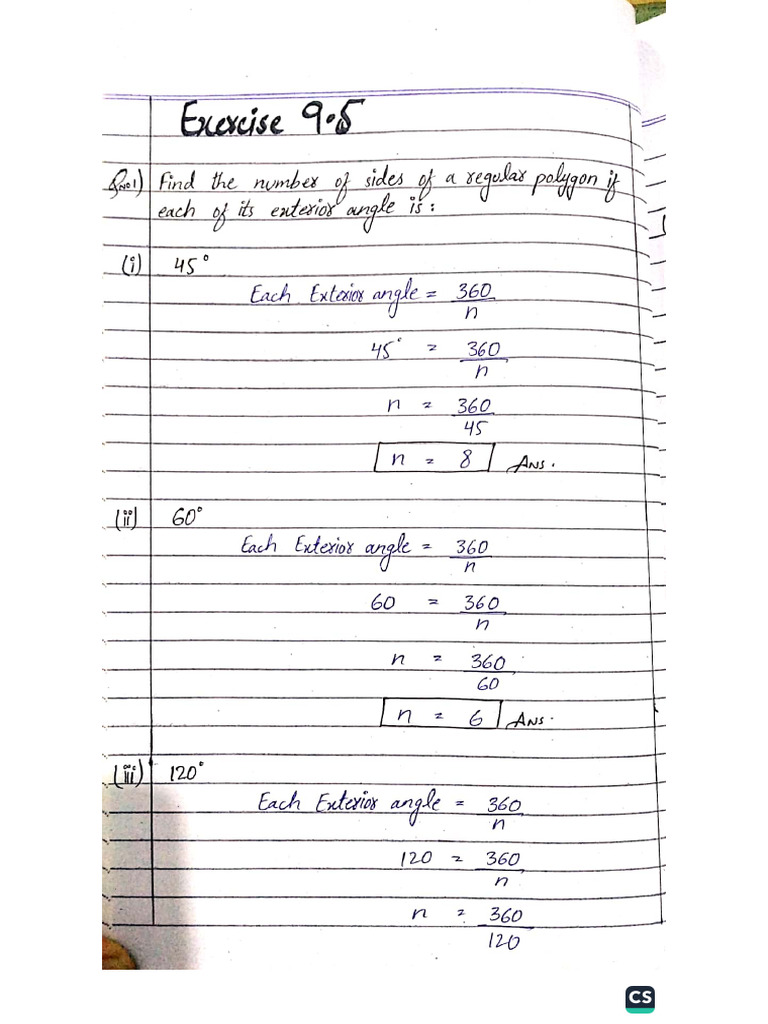 Exercise 9.5
QNo1) Find the number of sides of a regular polygon if
each of its exterior angle is:
(i) 45°
Each Exterior angle = 360/n
45° = 360/n
n = 360/45
n = 8 Ans.
(ii) 60°
Each Exterior angle = 360/n
60 = 360/n
n = 360/60
n = 6 Ans.
(iii) 120°
Each Exterior angle = 360/n
120 = 360/n
n = 360/120
CS